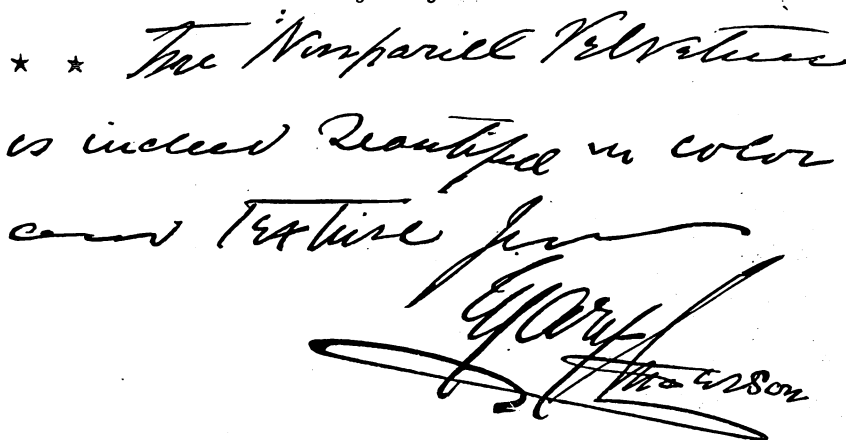 ★ ★ The Nonpariell Velveteen
is indeed Beautiful in color
and Texture Yours
Mary Anderson